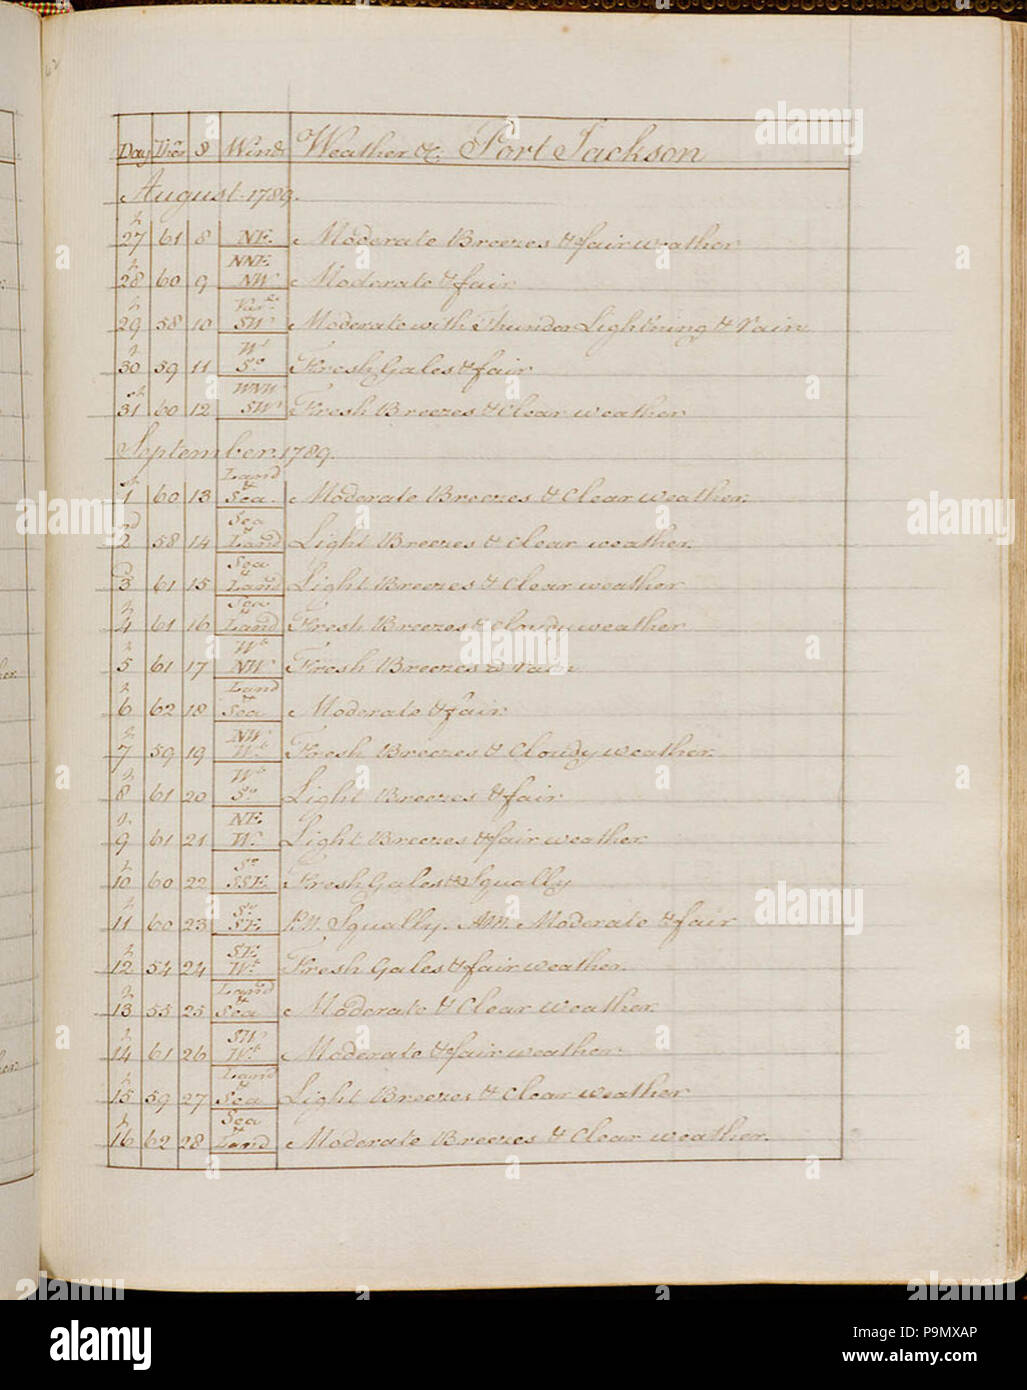 62
Day Ther S Winds Weather &c. Port Jackson
August. 1789.
27 61 8 NE. Moderate Breezes & fair weather
28 60 9 NNE. NW Moderate & fair
29 58 10 Var. SW Moderate with Thunder Lightning & Rain
30 59 11 Wt So Fresh Gales & fair
31 60 12 WNW SW Fresh Breezes & Clear weather
September. 1789.
1 60 13 Land & Sea. Moderate Breezes & Clear weather.
2 58 14 Sea & Land Light Breezes & Clear weather.
3 61 15 Sea & Land Light Breezes & Clear weather
4 61 16 Sea & Land Fresh Breezes & Cloudy weather
5 61 17 Wt NW Fresh Breezes & rain
6 62 18 Land & Sea Moderate & fair.
7 59 19 NW Wt Fresh Breezes & Cloudy weather.
8 61 20 Wt So Light Breezes & fair
9 61 21 NE. W Light Breezes & fair weather
10 60 22 So SSE. Fresh Gales & Squally
11 60 23 So SE. P.M. Squally. AM. Moderate & fair
12 54 24 SE. Wt Fresh Gales & fair weather.
13 55 25 Land & Sea Moderate & Clear weather.
14 61 26 SW Wt Moderate & fair weather.
15 59 27 Land & Sea Light Breezes & Clear weather
16 62 28 Sea & Land Moderate Breezes & Clear weather.
alamy
alamy
Image ID: P9MXAP
www.alamy.com